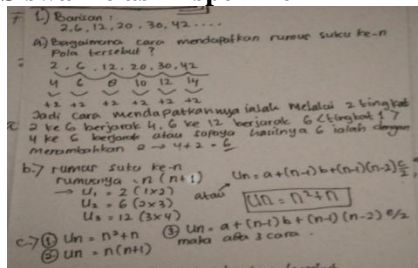 1.) Barisan :
2, 6, 12, 20, 30, 42 ....
a) Bagaimana cara mendapatkan rumus suku ke-n
Pola tersebut ?
2 . 6 . 12 . 20 . 30 . 42
4 6 8 10 12 14
+2 +2 +2 +2 +2 +2
Jadi cara mendapatkannya ialah melalui 2 tingkat
2 ke 6 berjarak 4, 6 ke 12 berjarak 6 <tingkat 1>
4 ke 6 atau hasilnya 6 ialah dengan
menambahkan 2 → 4+2 = 6
b.) rumus suku ke-n
rumusnya = n (n+1)
→ U1 = 2 (1x2)
U2 = 6 (2x3)
U3 = 12 (3x4)
atau
Un = a+(n-1)b+(n-1)(n-2) c/2
Un = n²+n
c.) ① Un = n²+n
② Un = n(n+1)
③ Un = a+(n-1)b+(n-1)(n-2) c/2
maka ada 3 cara.